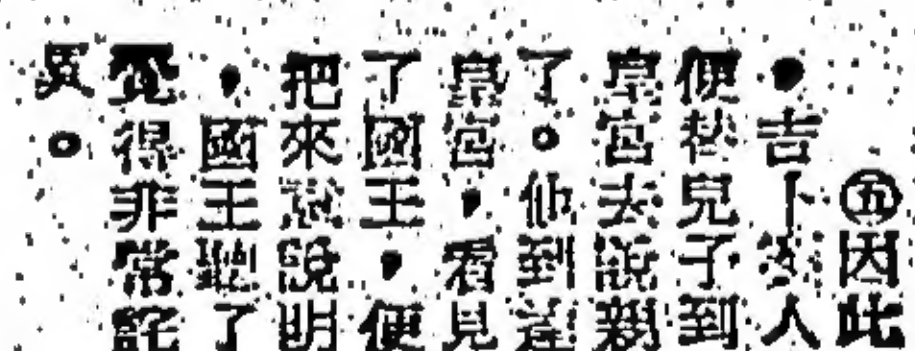 ㊄因此
，吉卜賽人
便替兒子到
皇宮去說親
了。他到達
皇宮，看見
了國王，便
把來意說明
，國王聽了
覺得非常詫
異。